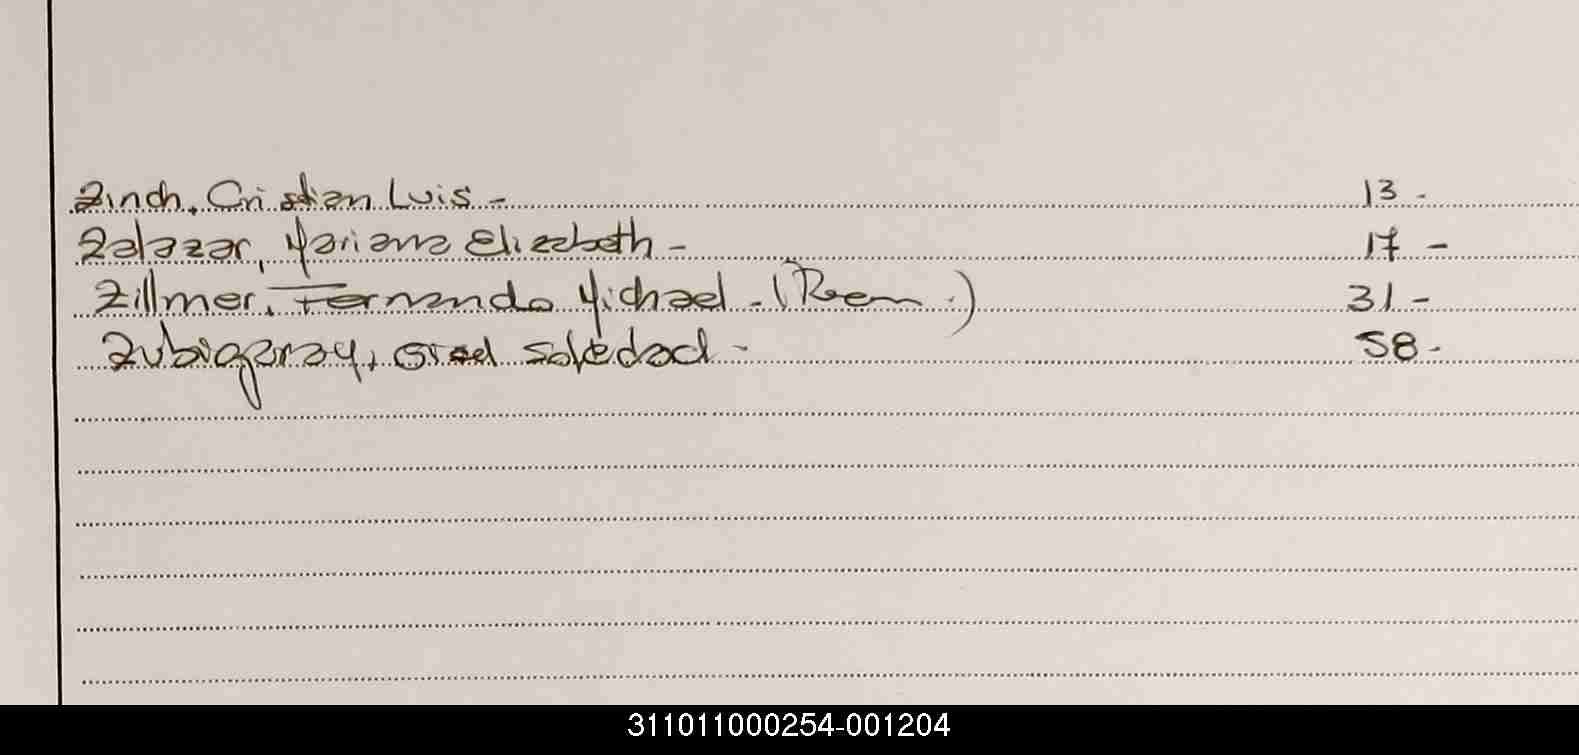 Zinch, Cristian Luis - 13 -
Zalazar, Mariana Elizabeth - 17 -
Zillmer, Fernando Michael - (Reem.) 31 -
Zubigaray, Gisel Soledad - 58 -
311011000254-001204